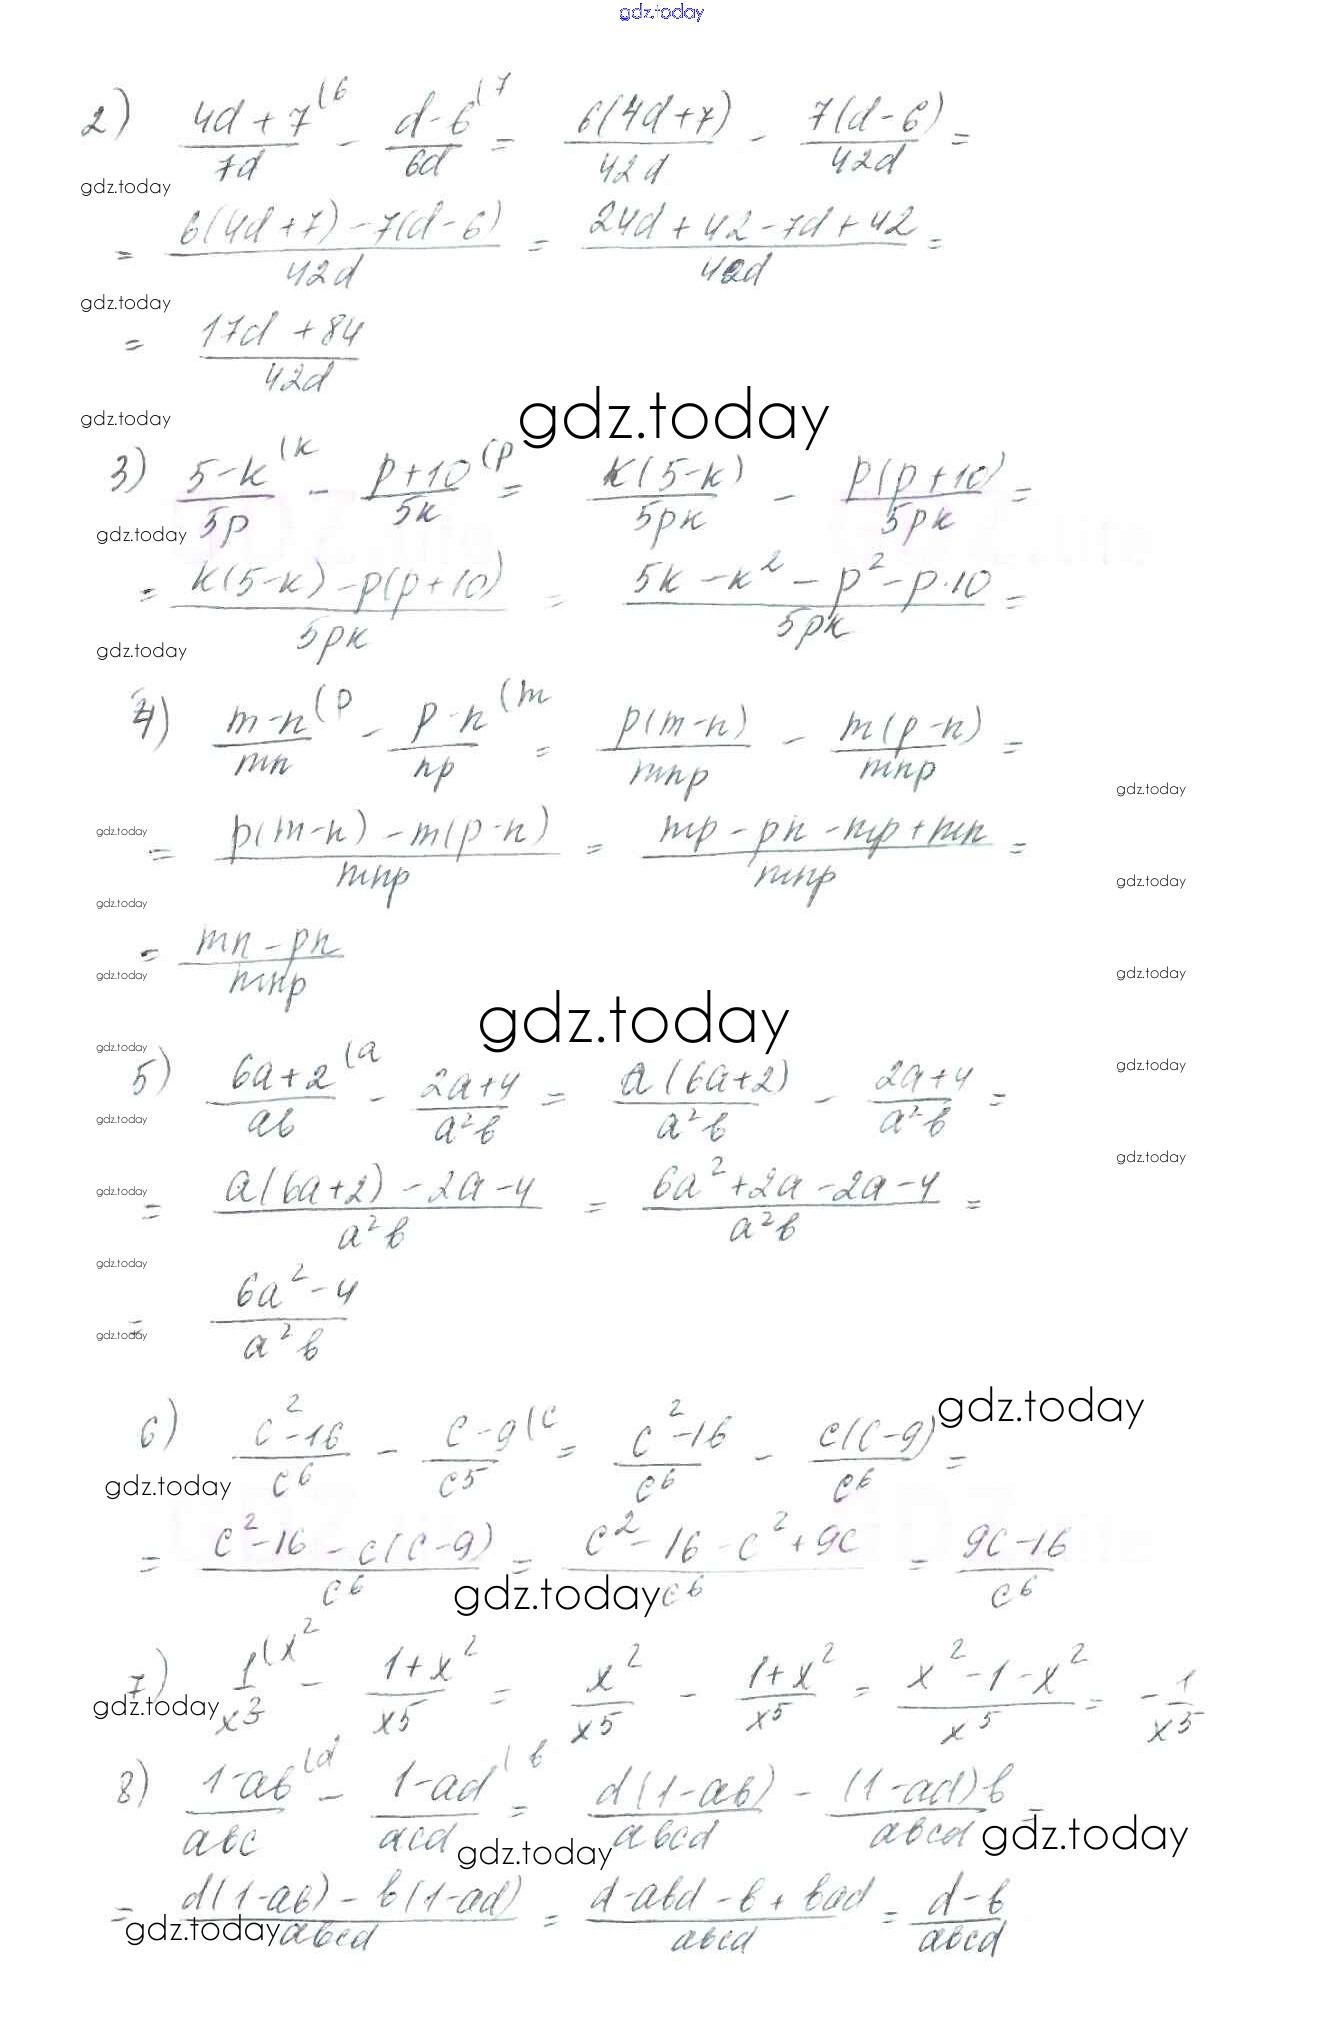 gdz.today
2) (4d+7)/(7d) (6 - (d-6)/(6d) (7 = 6(4d+7)/(42d) - 7(d-6)/(42d) =
gdz.today
= (6(4d+7)-7(d-6))/(42d) = (24d+42-7d+42)/(42d) =
gdz.today
= (17d+84)/(42d)
gdz.today gdz.today
3) (5-k)/(5p) (k - (p+10)/(5k) (p = k(5-k)/(5pk) - p(p+10)/(5pk) =
gdz.today
= (k(5-k)-p(p+10))/(5pk) = (5k-k²-p²-p·10)/(5pk) =
gdz.today
4) (m-n)/(mn) (p - (p-n)/(np) (m = p(m-n)/(mnp) - m(p-n)/(mnp) =
gdz.today
gdz.today
= (p(m-n)-m(p-n))/(mnp) = (mp-pn-mp+mn)/(mnp) =
gdz.today
gdz.today
= (mn-pn)/(mnp)
gdz.today gdz.today
gdz.today
gdz.today gdz.today
5) (6a+2)/(ab) (a - (2a+4)/(a²b) = a(6a+2)/(a²b) - (2a+4)/(a²b) =
gdz.today
gdz.today
= (a(6a+2)-2a-4)/(a²b) = (6a²+2a-2a-4)/(a²b) =
gdz.today
gdz.today
= (6a²-4)/(a²b)
gdz.today
6) (c²-16)/(c⁶) - (c-9)/(c⁵) (c = (c²-16)/(c⁶) - c(c-9)/(c⁶) =
gdz.today
gdz.today
= (c²-16-c(c-9))/(c⁶) = (c²-16-c²+9c)/(c⁶) = (9c-16)/(c⁶)
gdz.today
7) 1/(x³) (x² - (1+x²)/(x⁵) = x²/(x⁵) - (1+x²)/(x⁵) = (x²-1-x²)/(x⁵) = -1/(x⁵)
gdz.today
8) (1-ab)/(abc) (d - (1-ad)/(acd) (b = d(1-ab)/(abcd) - (1-ad)b/(abcd) =
gdz.today
gdz.today
= (d(1-ab)-b(1-ad))/(abcd) = (d-abd-b+bad)/(abcd) = (d-b)/(abcd)
gdz.today